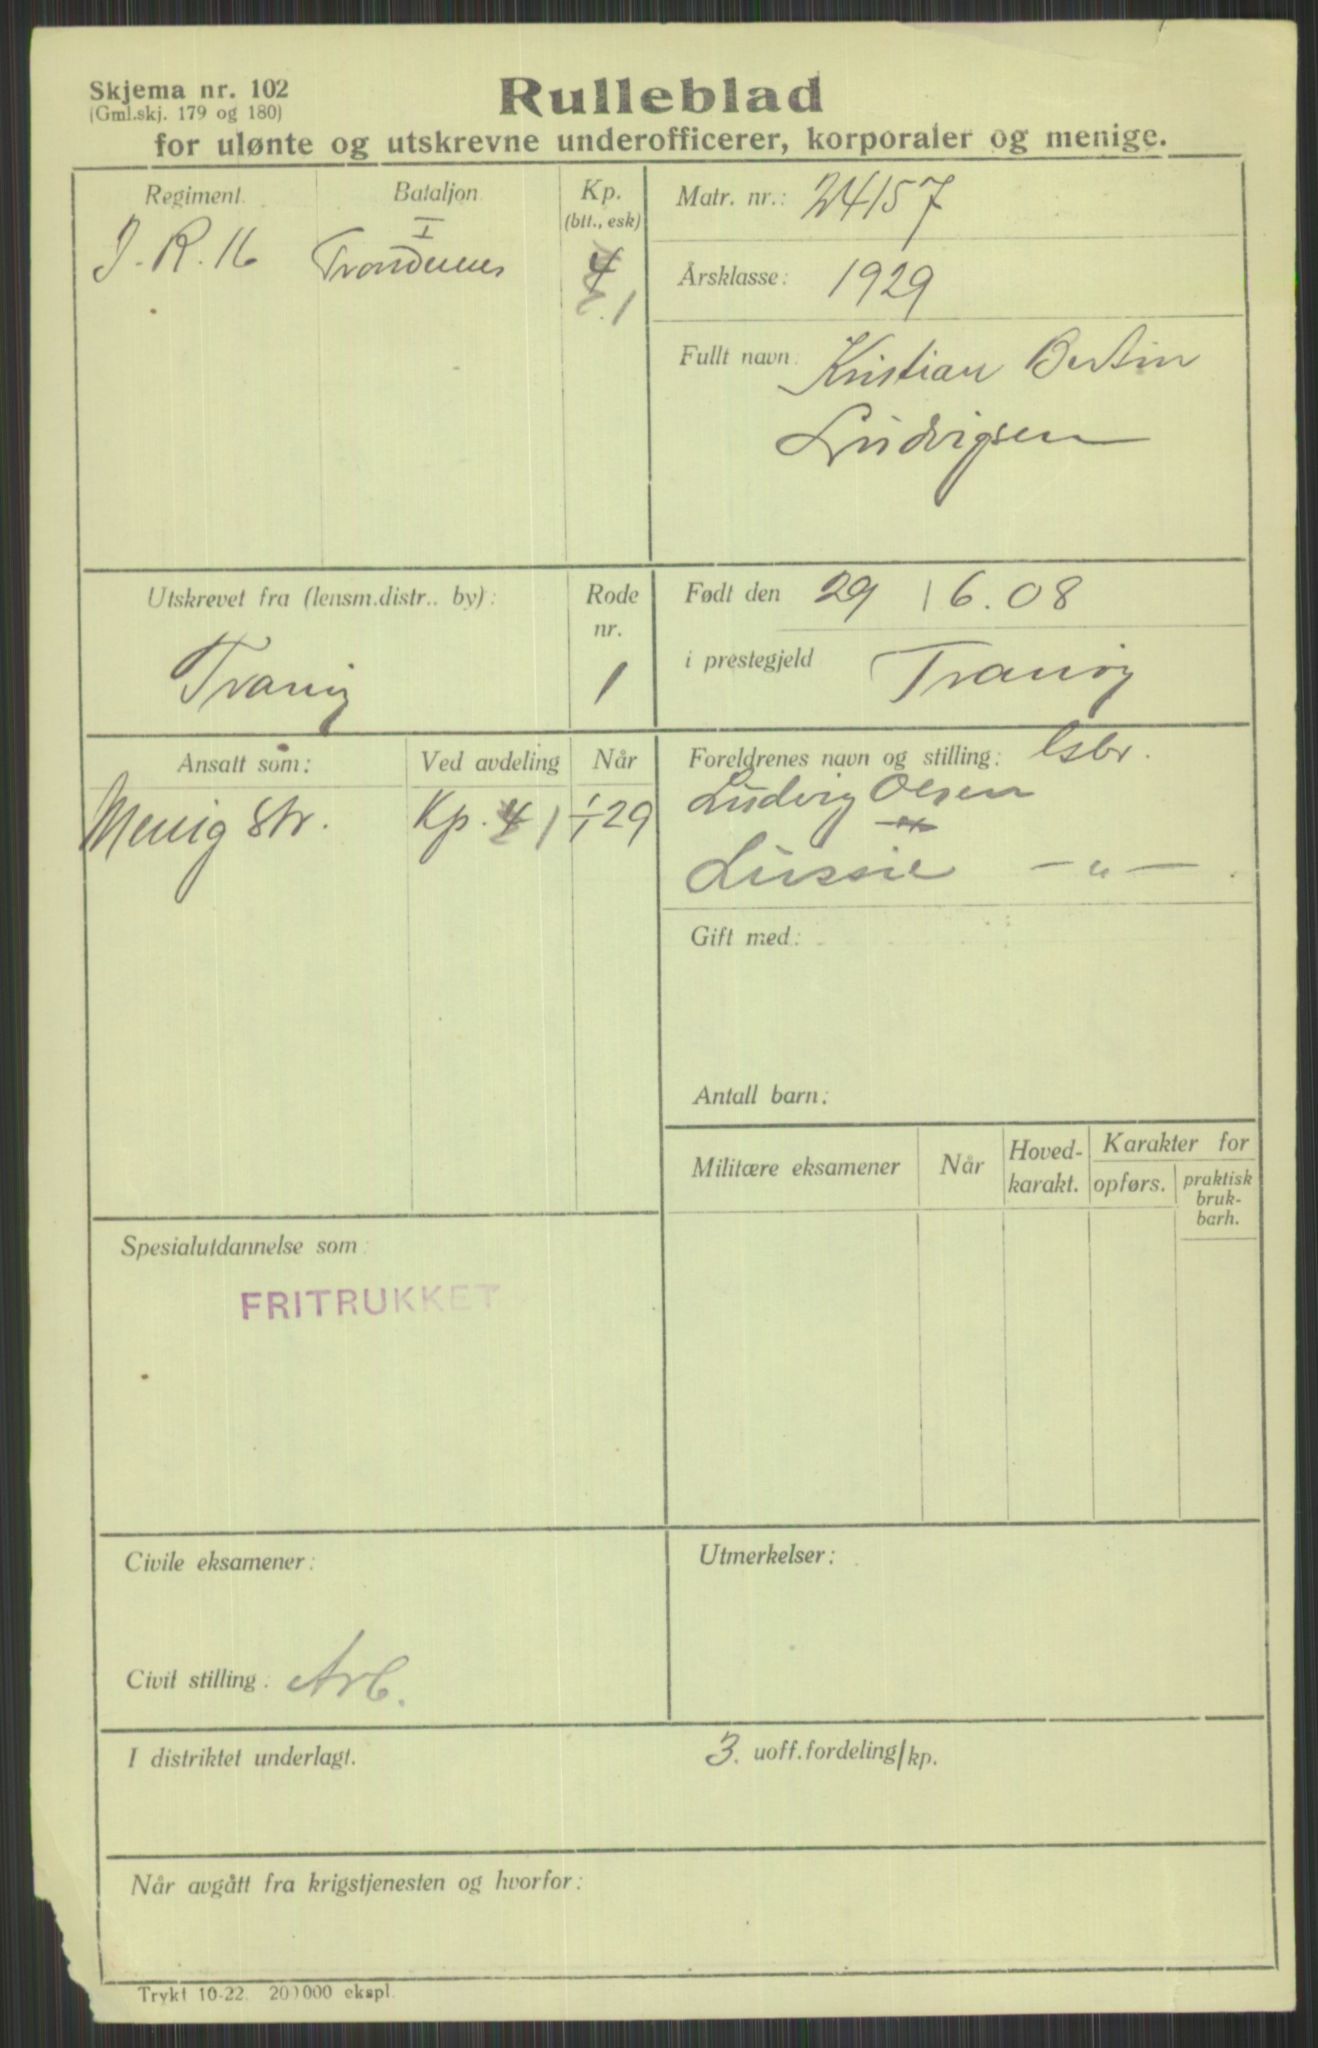 Skjema nr. 102
(Gml.skj. 179 og 180)
Rulleblad
for ulønte og utskrevne underofficerer, korporaler og menige.
Regiment.
Bataljon
Kp.
(btt., esk)
J. R. 16
I
Trondenes
4
1
Matr. nr.: 24157
Årsklasse: 1929
Fullt navn: Kristian Bertin
Ludvigsen
Utskrevet fra (lensm.distr.. by):
Tranøy
Rode
nr.
1
Født den 29 / 6. 08
i prestegjeld Tranøy
Ansatt som:
Ved avdeling
Når
Menig str.
Kp. 4 1
1/1 29
Foreldrenes navn og stilling: Gsbr.
Ludvig Olsen
Lussie — " —
Gift med:
Antall barn:
Militære eksamener
Når
Hoved-
karakt.
Karakter for
opførs.
praktisk
bruk-
barh.
Spesialutdannelse som:
FRITRUKKET
Civile eksamener:
Civil stilling: Arb.
Utmerkelser:
I distriktet underlagt.
3. uoff. fordeling/kp.
Når avgått fra krigstjenesten og hvorfor:
Trykt 10-22. 200000 ekspl.